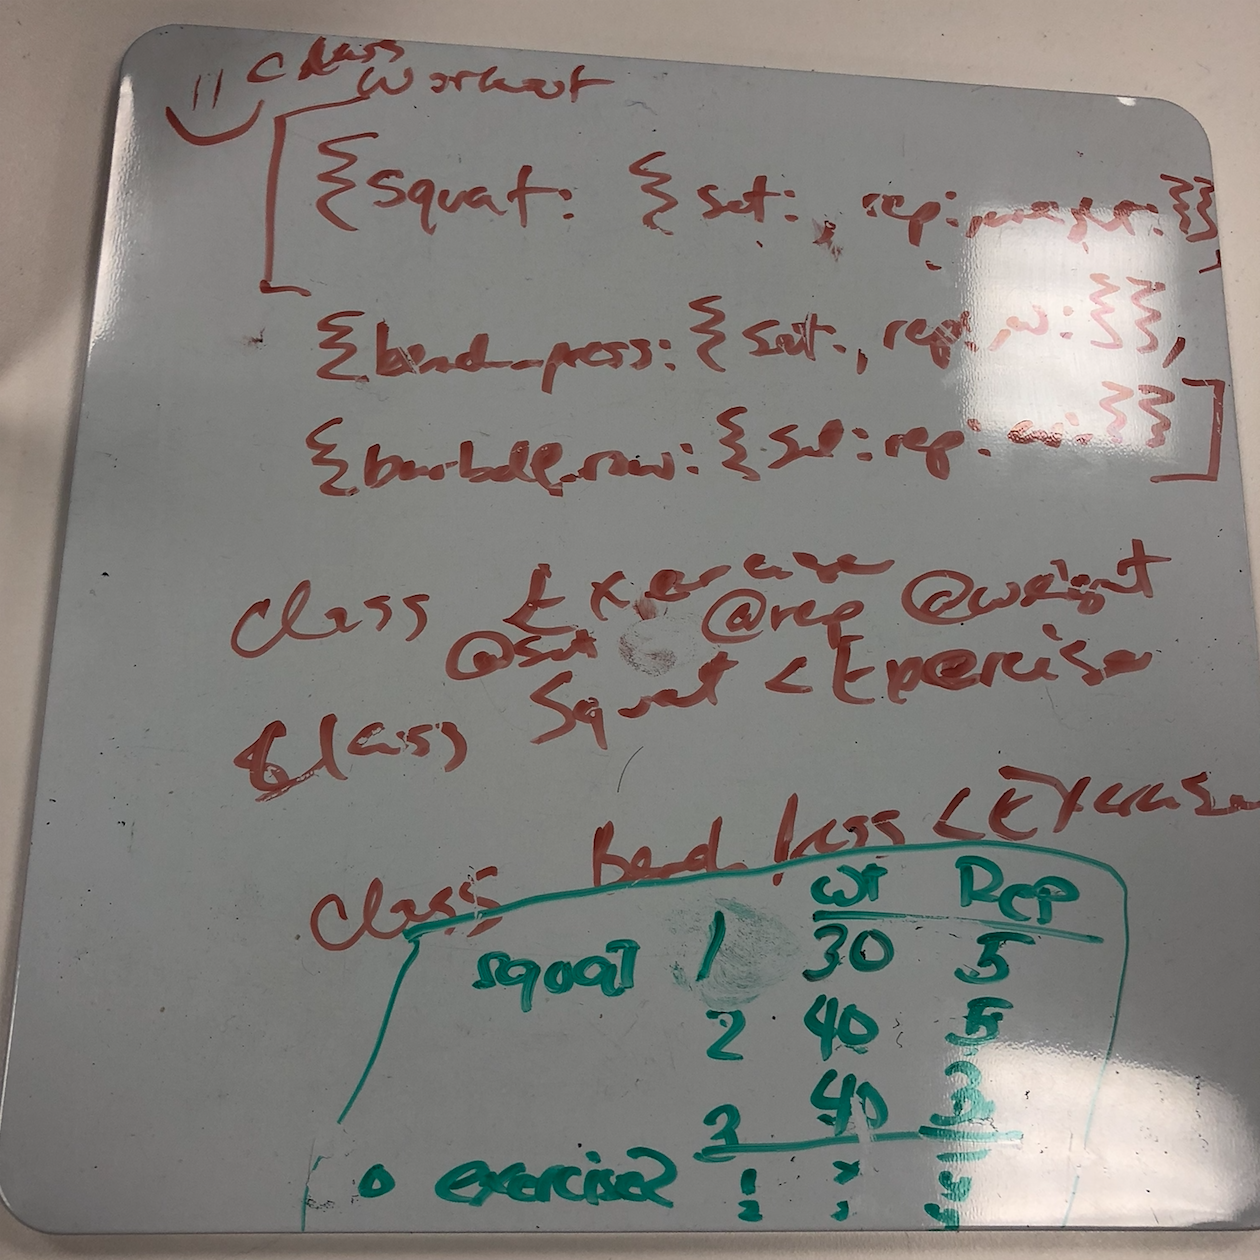 class
Workout
[{squat: {set:, rep: weight:}},
{bench_press: {set:, rep: w:}},
{barbell_row: {set: rep: w:}}]
class Exercise
@set @rep @weight
class Squat < Exercise
class Bench Press < Exercise
wt Rep
squat 1 30 5
2 40 5
3 40 3
exercise2 1
2